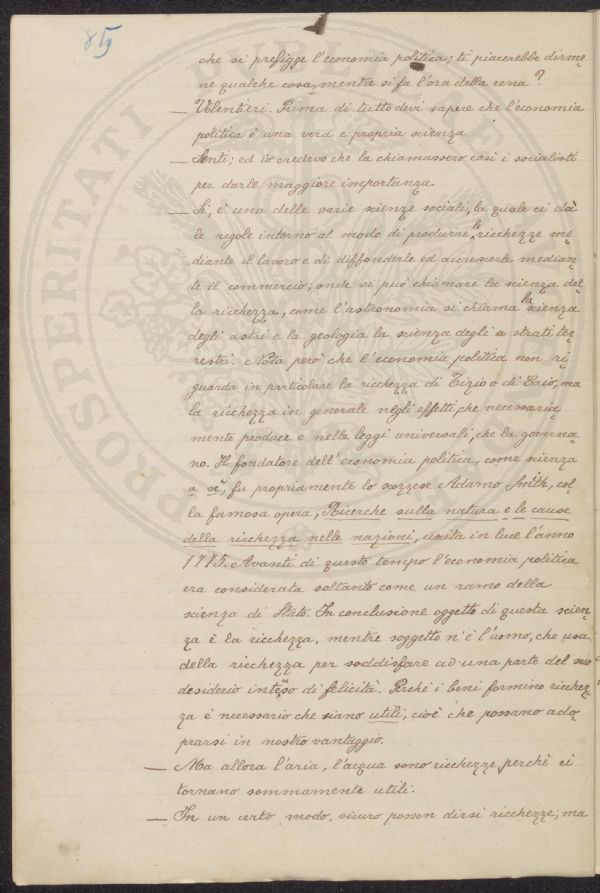 859
che si prefigge l'economia politica; ti piacerebbe dirme-
ne qualche cosa, mentre si fa l'ora della cena?
— Volentieri. Prima di tutto devi sapere che l'economia
politica è una vera e propria scienza
— Senti; ed io credevo che la chiamassero così i socialisti
per darle maggiore importanza.
— Sì, è una delle varie scienze sociali, la quale ci dà
le regole intorno al modo di produrre le ricchezze me-
diante il lavoro e di diffonderle ed accrescerle median-
te il commercio; onde si può chiamare la scienza del-
la ricchezza, come l'astronomia si chiama la scienza
degli astri e la geologia la scienza degli a strati ter-
restri. Nota però che l'economia politica non ri-
guarda in particolare la ricchezza di Tizio o di Caio, ma
la ricchezza in generale negli effetti, che necessaria-
mente produce e nelle leggi universali, che la governa-
no. Il fondatore dell'economia politica, come scienza
a sè, fu propriamente lo scozzese Adamo Smith, col-
la famosa opera, Ricerche sulla natura e le cause
della ricchezza nelle nazioni, uscita in luce l'anno
1775. Avanti di questo tempo l'economia politica
era considerata soltanto come un ramo della
scienza di Stato. In conclusione oggetto di questa scien-
za è la ricchezza, mentre soggetto n'è l'uomo, che usa
della ricchezza per soddisfare ad una parte del suo
desiderio intenso di felicità. Perchè i beni formino ricchez-
za è necessario che siano utili; cioè che possano ado-
prarsi in nostro vantaggio.
— Ma allora l'aria, l'acqua sono ricchezze, perchè ci
tornano sommamente utili.
— In un certo modo, sicuro posson dirsi ricchezze; ma
PROSPERITATI